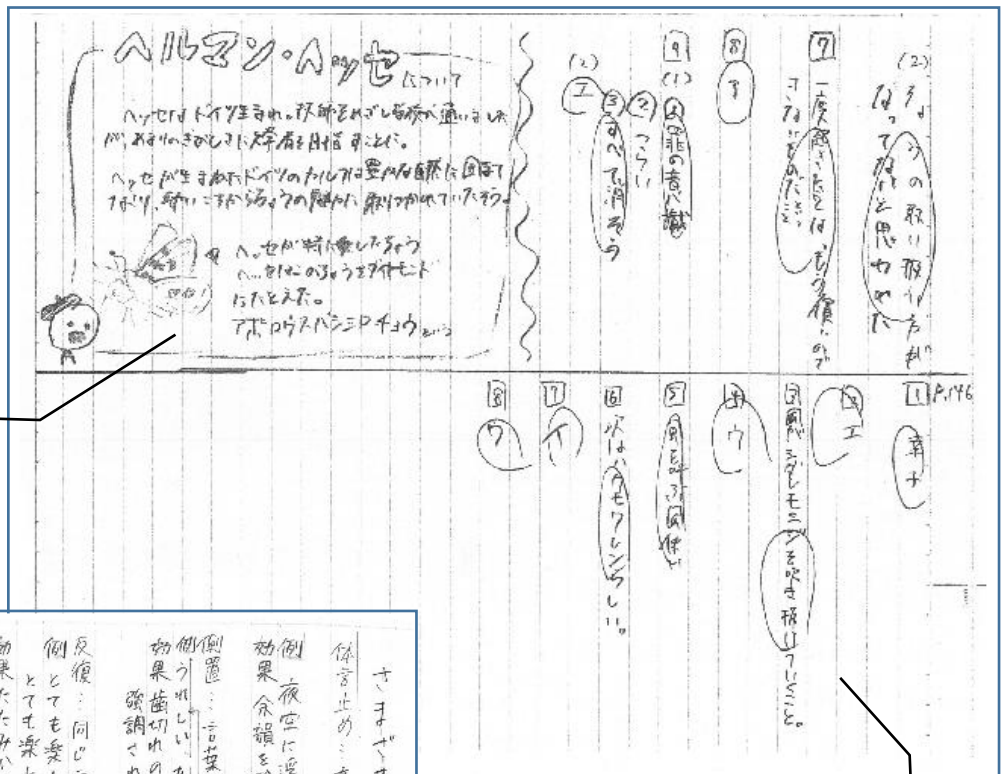 (2)
ちょうの取り扱い方が
なってないと思われた
7
一度起きたことは、もう償いので
きないものだと
8
9
(1)
罪の意識
② つらい
③ すべて消そう
(2)
エ
ヘルマン・ヘッセについて
ヘッセはドイツ生まれ。牧師をめざし学校へ通いました
が、あまりのきびしさに文学者を目指すことに。
ヘッセが生まれたドイツのカルフは豊かな自然に囲まれて
おり、幼いころからちょうの魅力に取りつかれていたそう。
ヘッセが特に愛したちょう
ヘッセはこのちょうをダイヤモンド
にたとえた。
P.146
1
2 エ
3 風がシダレモミジを吹き抜けていくこと。
4 ウ
5
6 次はハクモクレンらしい。
7 イ
8 ウ
さまざま
体言止め…
例 夜空に
効果 余韻を
倒置…言葉
例 うれしい
効果 歯切れの
強調され
反復…同じ
例 とても楽し
とても楽し
効果